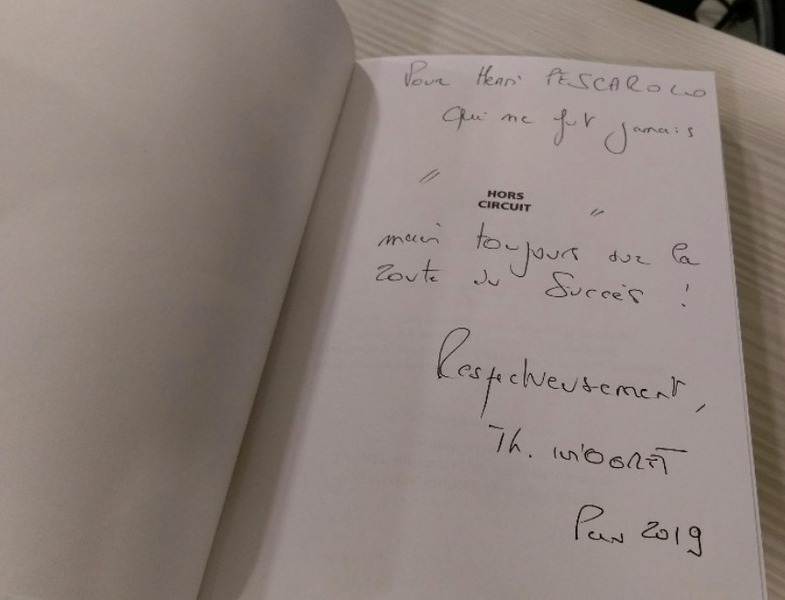 Pour Henri PESCAROLO
Qui ne fut jamais
"
HORS
CIRCUIT
"
mais toujours sur la
route du Succès !
Respectueusement,
Th.
2019